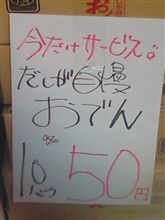 お
今だけサービス。
だしが自慢
おでん
1パック
50円